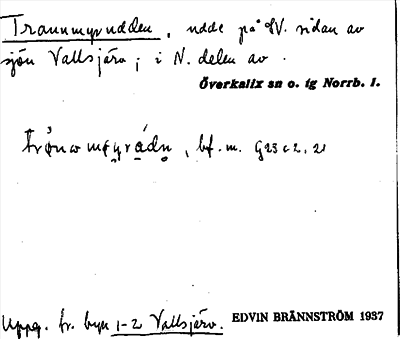 Tranumyrudden, udde på SV. sidan av
sjön Vallsjärv; i N. delen av
Överkalix sn o. tg Norrb. l.
bf. m. G23 c 2, 21
Uppg. fr. byn 1-2 Vallsjärv.
EDVIN BRÄNNSTRÖM 1937